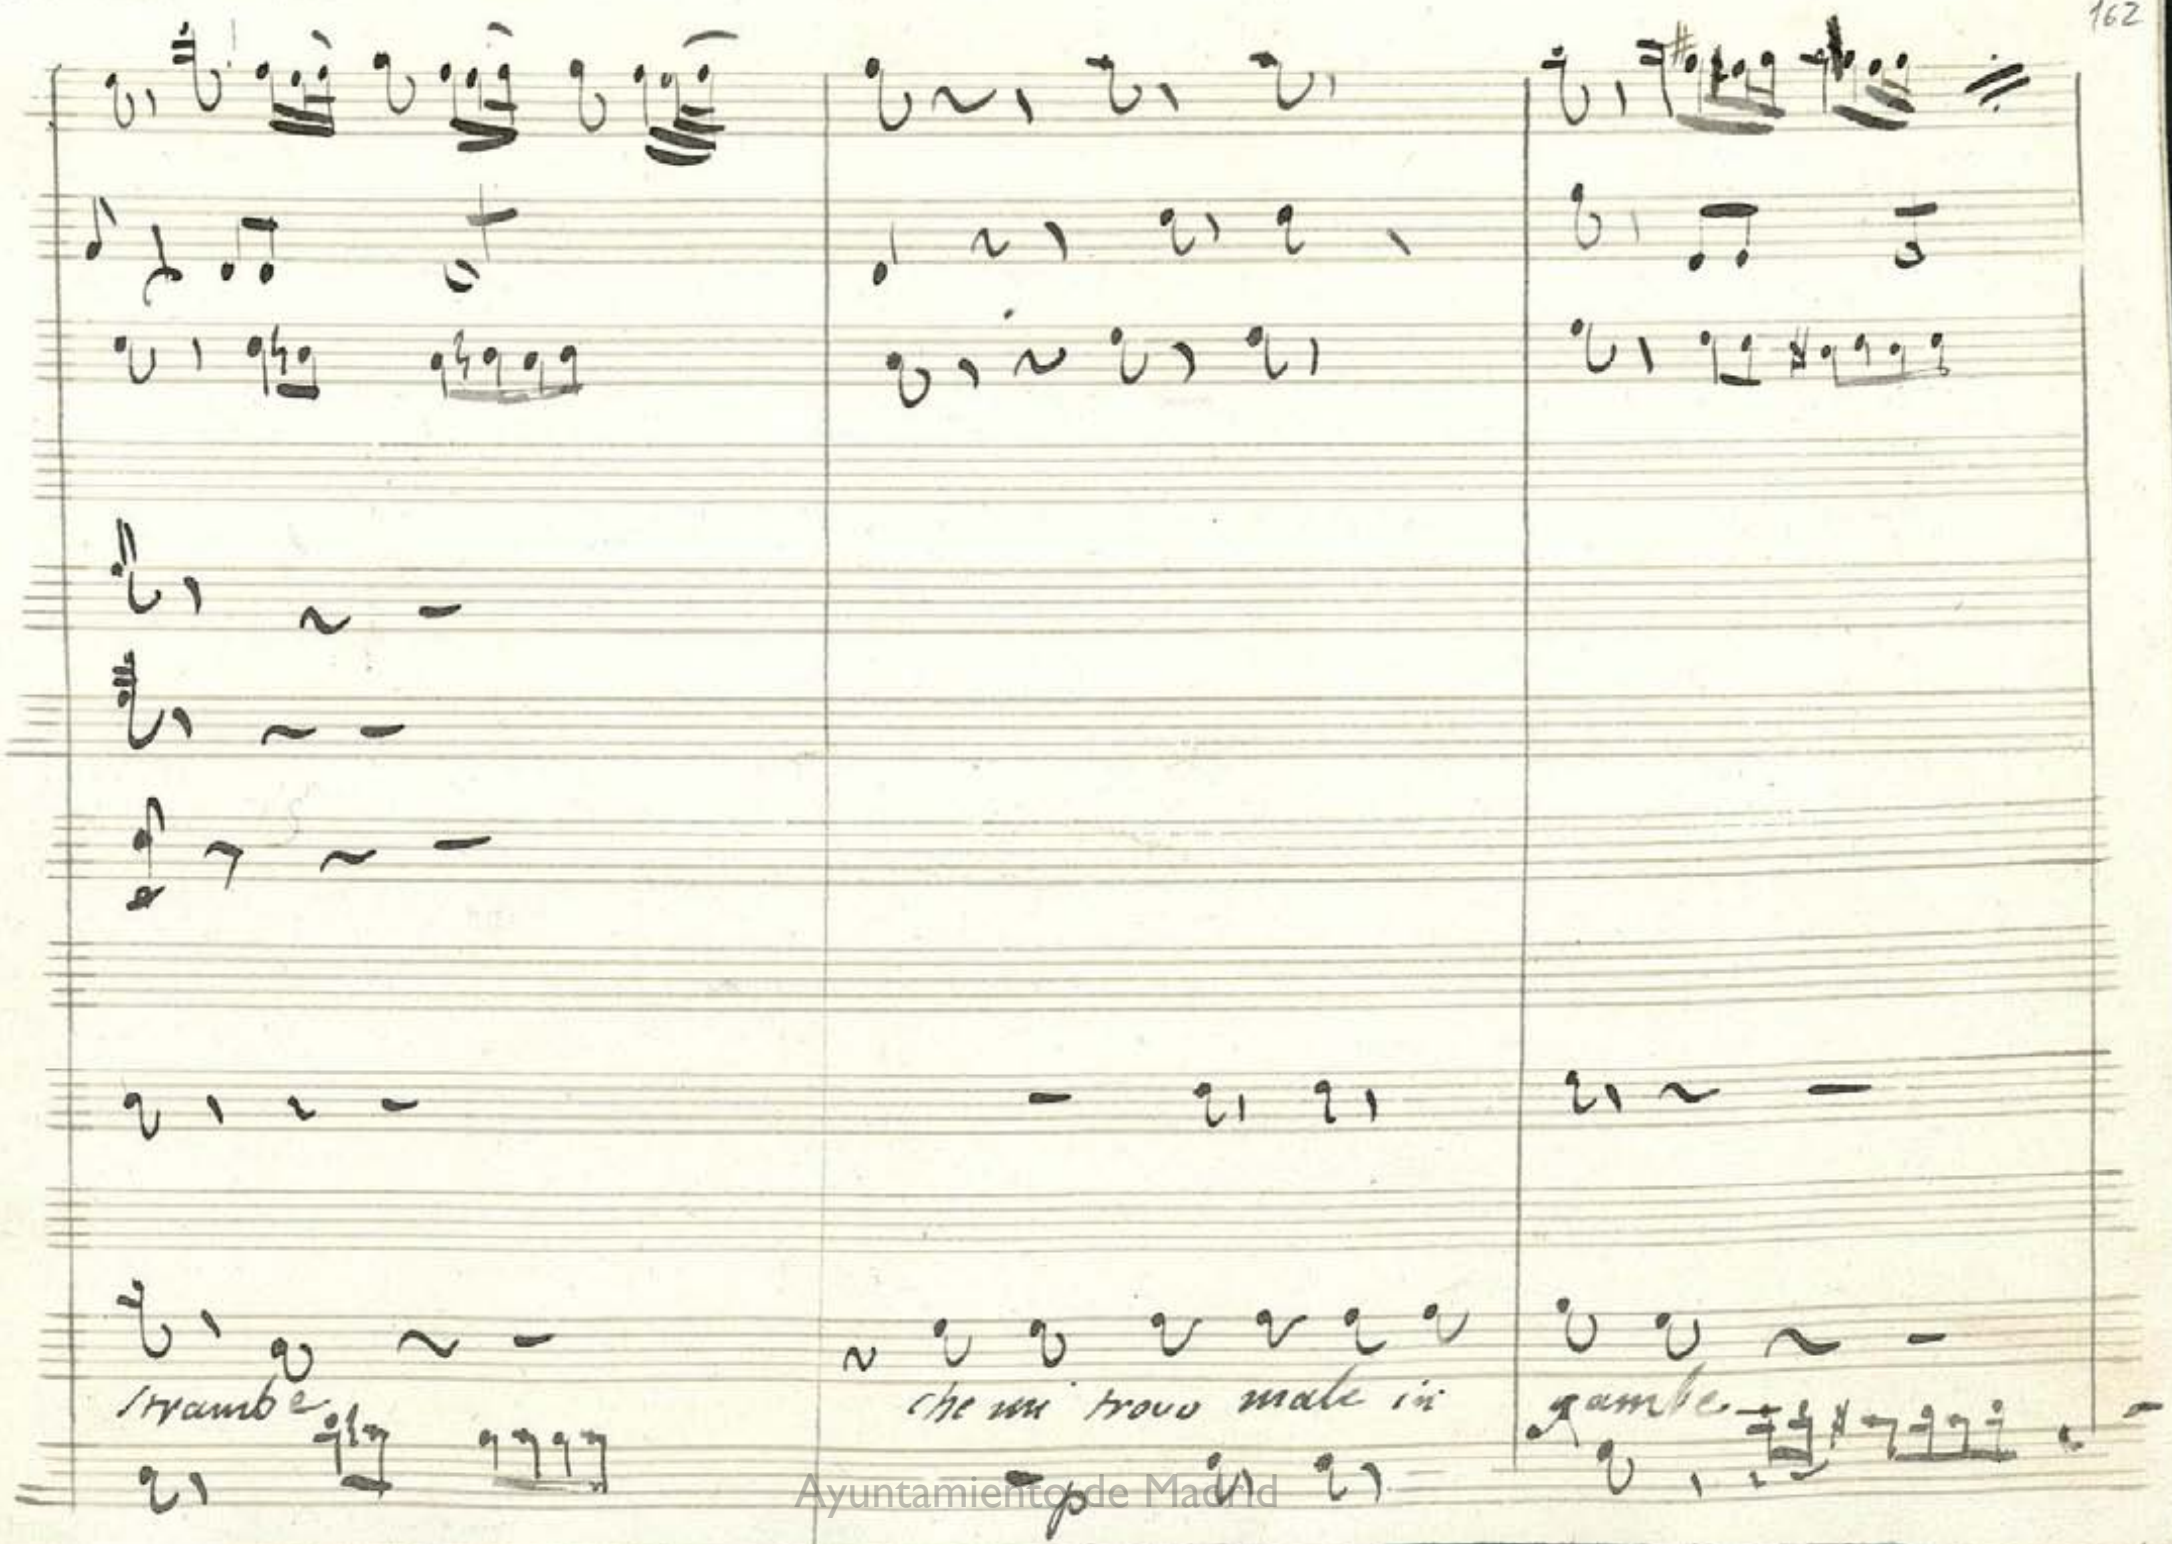 162
strambe che mi trovo male in gambe
p
Ayuntamiento de Madrid